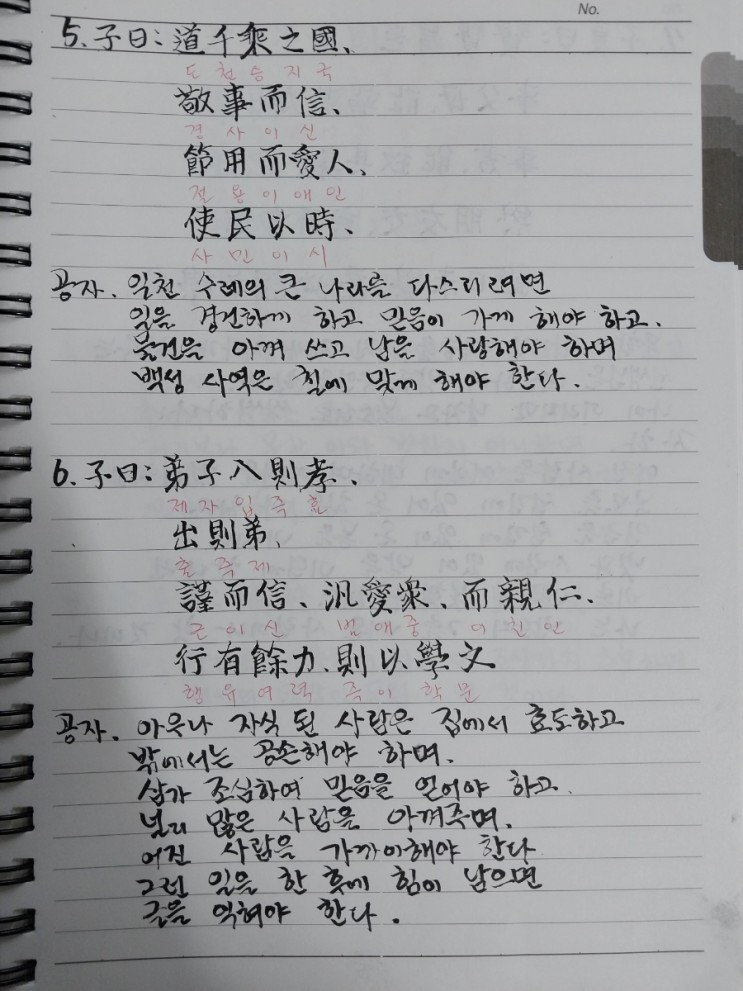 No.
5. 子曰: 道千乘之國、
도 천 승 지 국
敬事而信、
경 사 이 신
節用而愛人、
절 용 이 애 인
使民以時、
사 민 이 시
공자. 일천 수레의 큰 나라를 다스리려면
일을 경건하게 하고 믿음이 가게 해야 하고.
물건을 아껴 쓰고 남을 사랑해야 하며
백성 사역은 철에 맞게 해야 한다.
6. 子曰: 弟子入則孝、
제 자 입 즉 효
出則弟、
출 즉 제
謹而信、汎愛衆、而親仁、
근 이 신 범 애 중 이 친 인
行有餘力、則以學文
행 유 여 력 즉 이 학 문
공자. 아우나 자식 된 사람은 집에서 효도하고
밖에서는 공손해야 하며.
삼가 조심하여 믿음을 얻어야 하고.
널리 많은 사람을 아껴주며.
어진 사람을 가까이해야 한다
그런 일을 한 후에 힘이 남으면
글을 익혀야 한다.